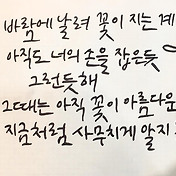 바람에 날려 꽃이 지는 계
아직도 너의 손을 잡은듯
그런듯 해
그때는 아직 꽃이 아름다운
지금처럼 사무치게 알지